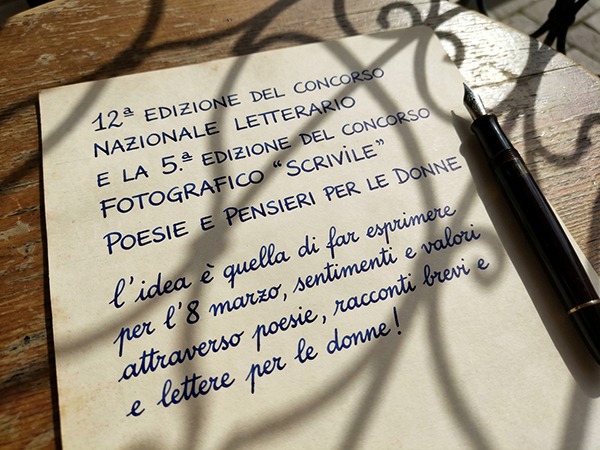 12ª EDIZIONE DEL CONCORSO
NAZIONALE LETTERARIO
E LA 5.ª EDIZIONE DEL CONCORSO
FOTOGRAFICO "SCRIVILE"
POESIE E PENSIERI PER LE DONNE
l'idea è quella di far esprimere
per l'8 marzo, sentimenti e valori
attraverso poesie, racconti brevi e
e lettere per le donne!